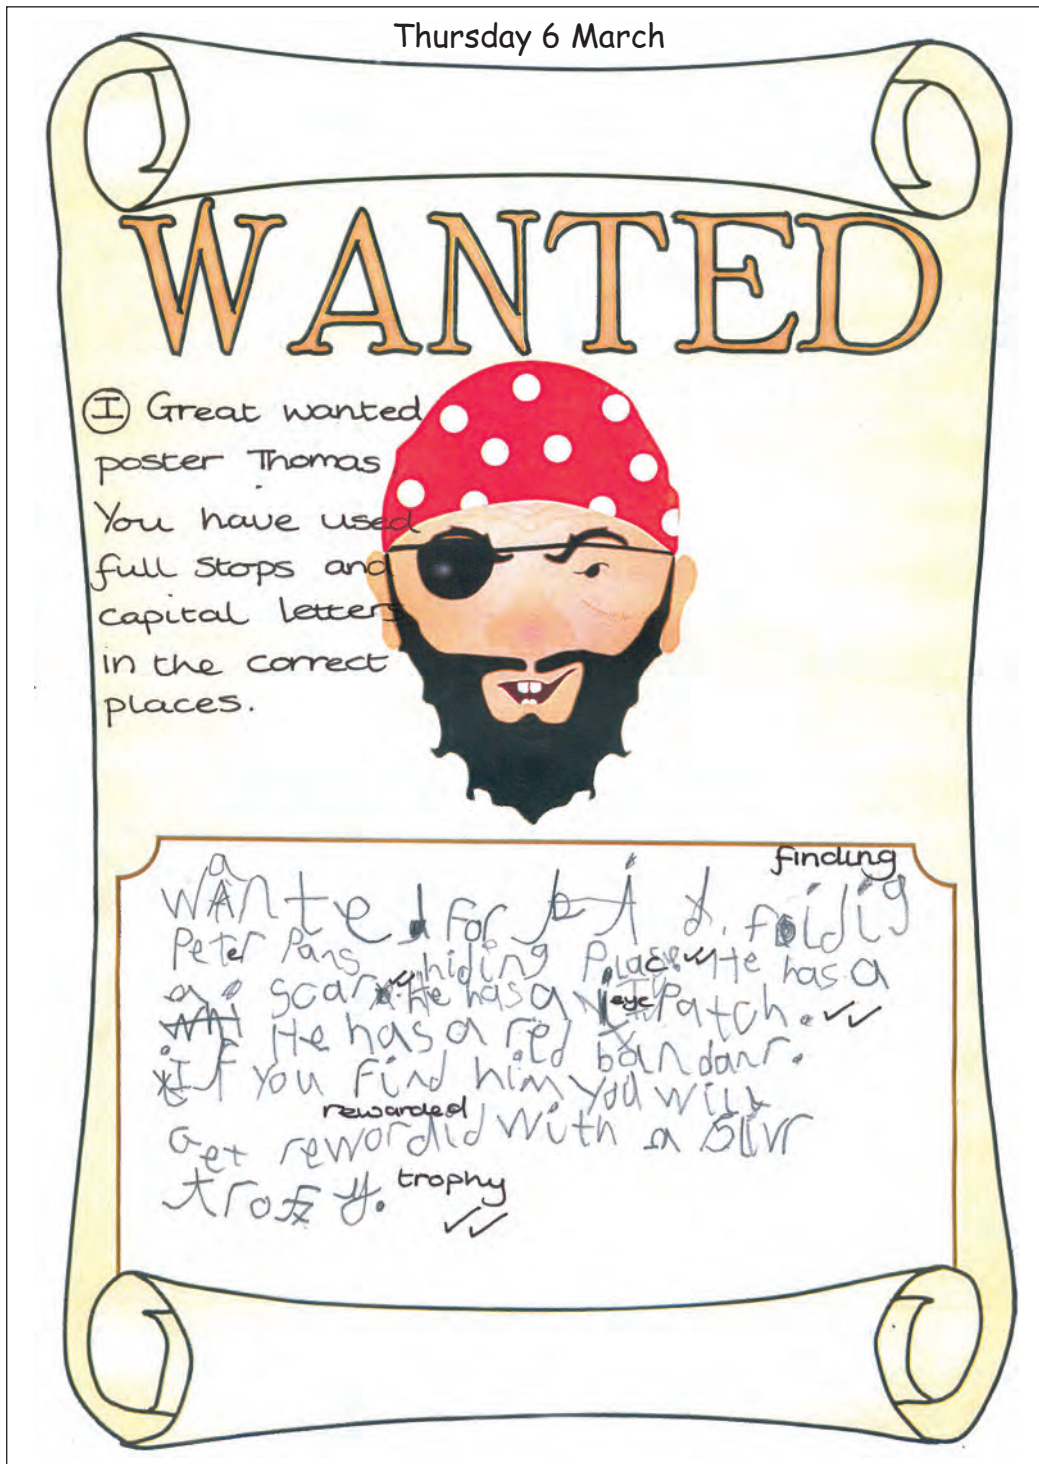 Thursday 6 March
WANTED
I Great wanted
poster Thomas
You have used
full stops and
capital letters
in the correct
places.
finding
a
wAnted for
Peter Pans hiding Place. He has a
a scar. He has a eye Patch.
He has a red bandanr.
If you find him you will
rewarded
Get rewordid with a Slivr
trofy. trophy